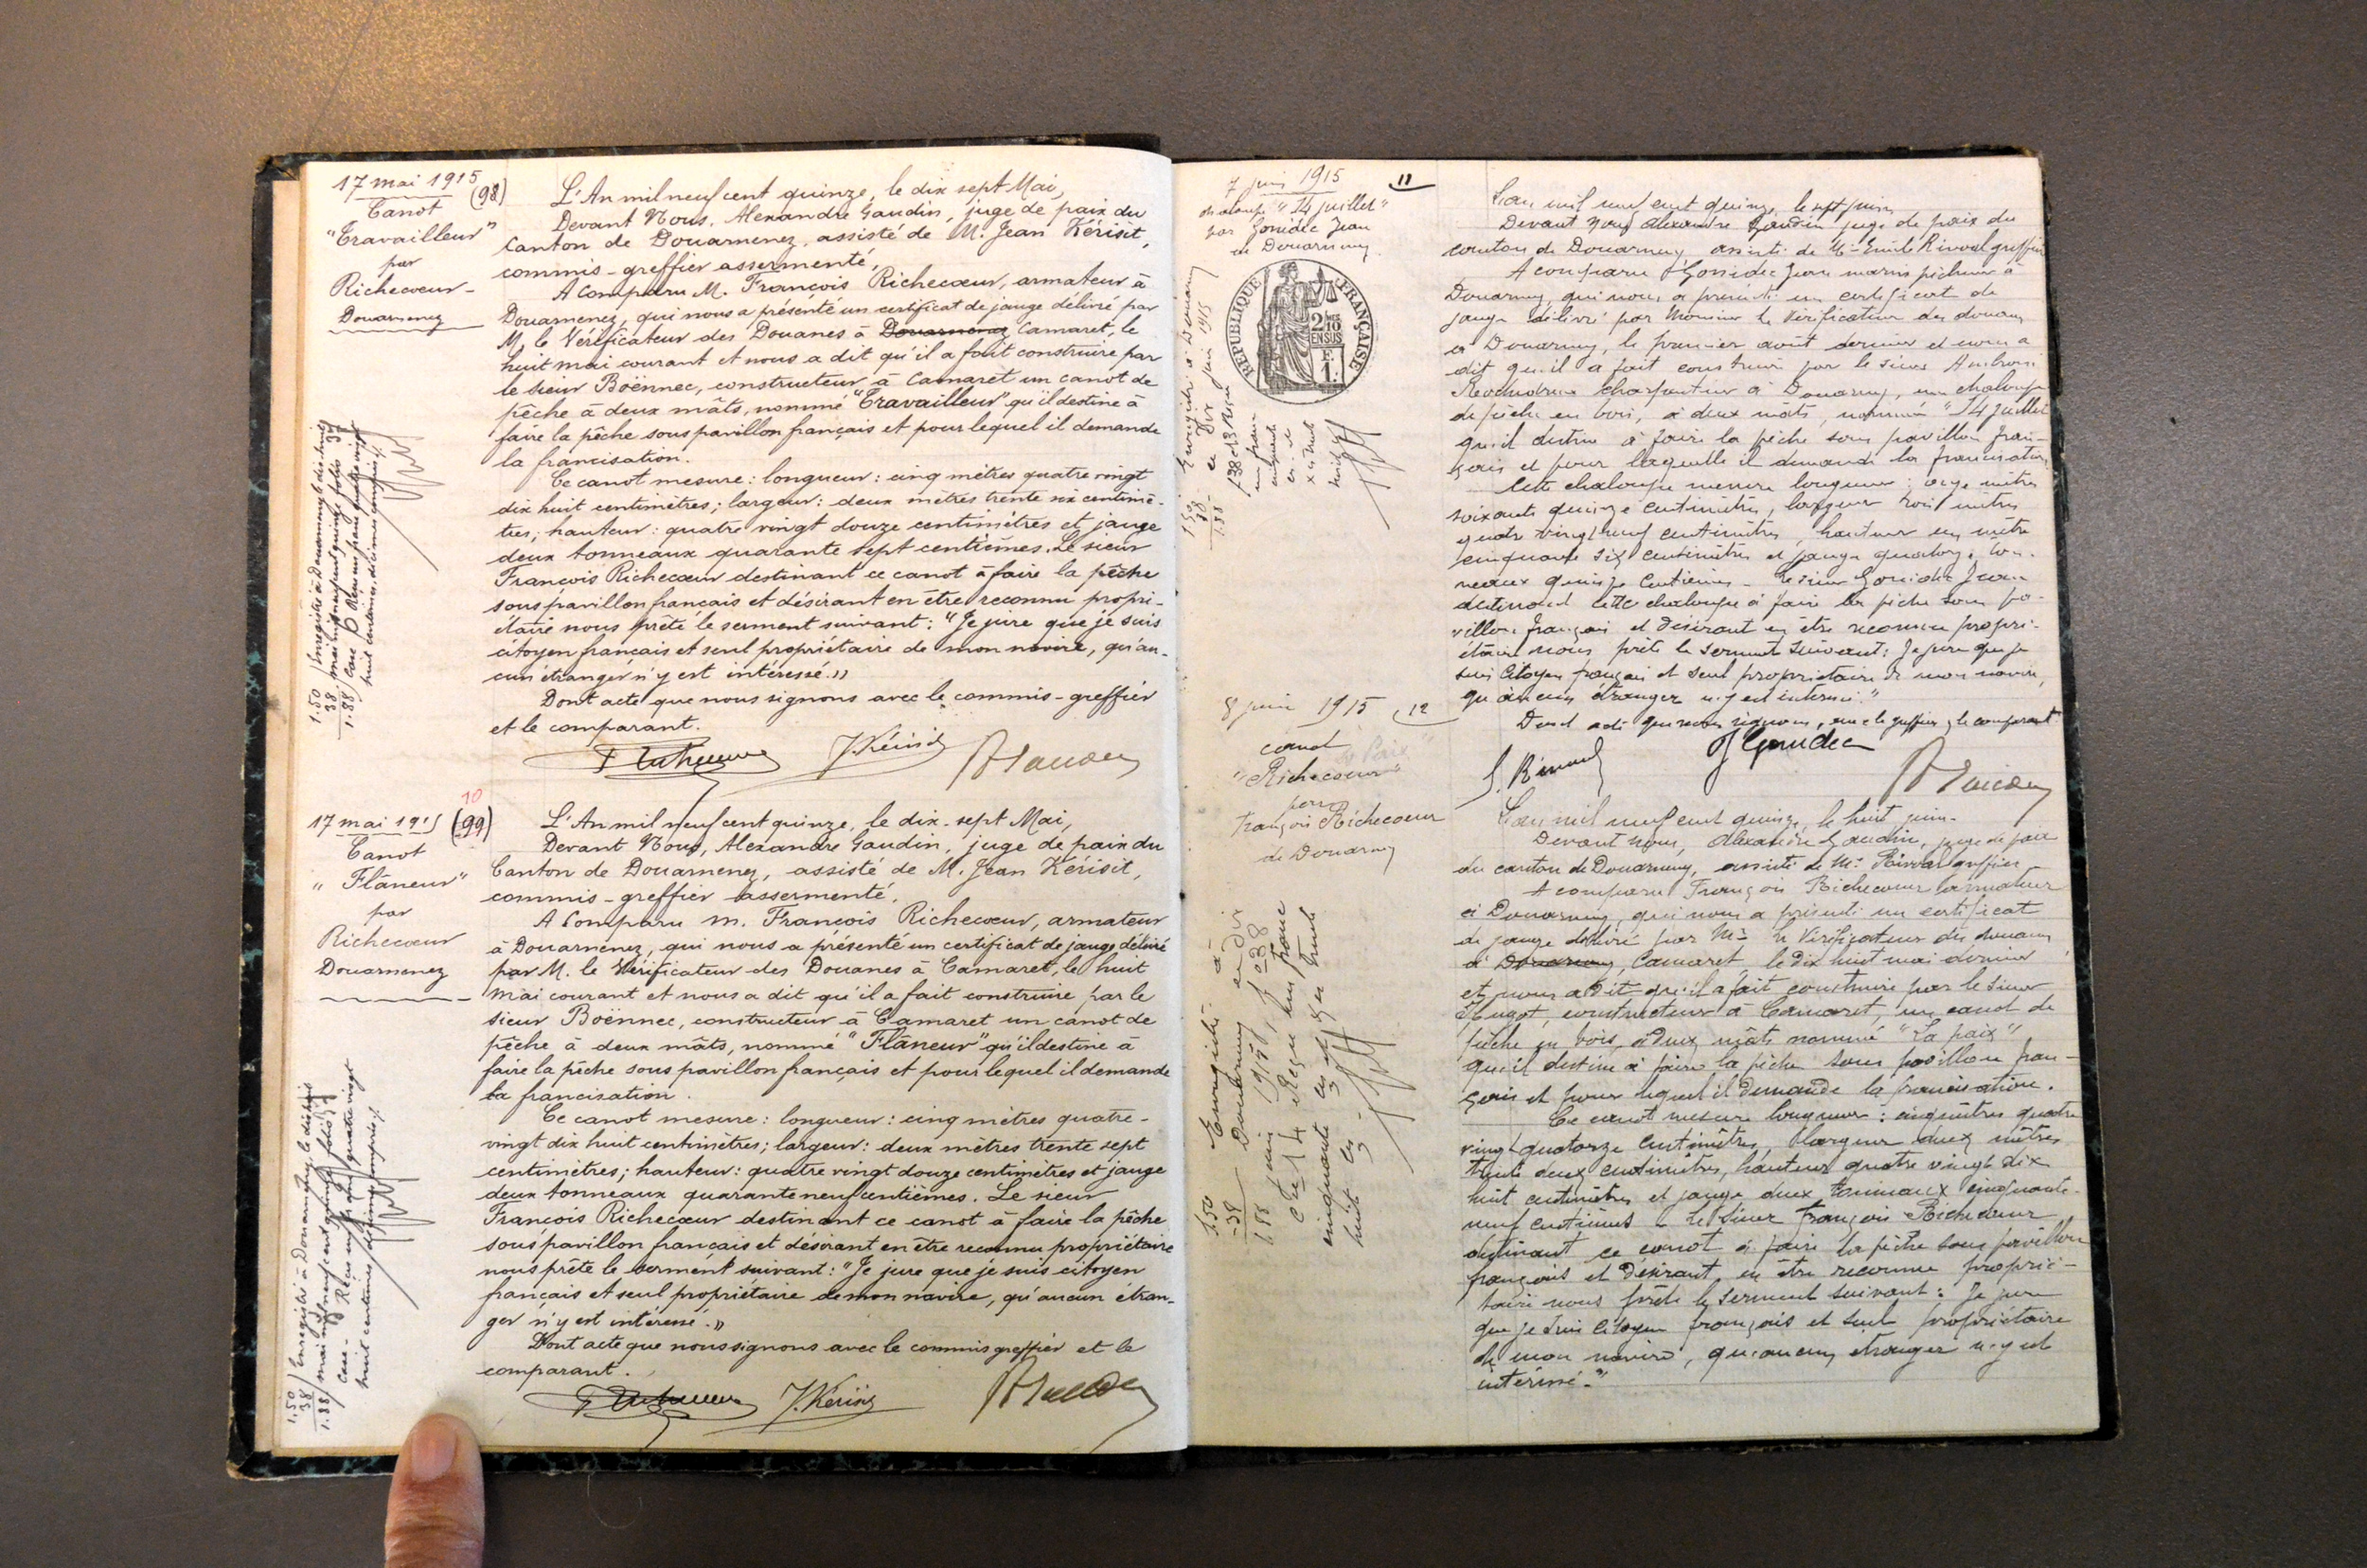 17 mai 1915
(98)
Canot
"Travailleur"
par
Richecœur
Douarnenez
L'An mil neuf cent quinze, le dix sept Mai,
Devant Nous, Alexandre Gaudin, juge de paix du
Canton de Douarnenez, assisté de M. Jean Kérisit,
commis-greffier assermenté,
A Comparu M. François Richecœur, armateur à
Douarnenez, qui nous a présenté un certificat de jauge délivré par
M. le Vérificateur des Douanes à Douarnenez Camaret, le
huit mai courant et nous a dit qu'il a fait construire par
le sieur Boënnec, constructeur à Camaret un canot de
pêche à deux mâts, nommé "Travailleur" qu'il destine à
faire la pêche sous pavillon français et pour lequel il demande
la francisation.
Ce canot mesure : longueur : cinq mètres quatre vingt
dix huit centimètres ; largeur : deux mètres trente six centimè-
tres ; hauteur : quatre vingt douze centimètres et jauge
deux tonneaux quarante sept centièmes. Le sieur
François Richecœur destinant ce canot à faire la pêche
sous pavillon français et désirant en être reconnu propri-
étaire nous prête le serment suivant : "Je jure que je suis
citoyen français et seul propriétaire de mon navire, qu'au-
cun étranger n'y est intéressé."
Dont acte que nous signons avec le commis-greffier
et le comparant.
J. Kérisit
Enregistré à Douarnenez le dix-huit
mai mil neuf cent quinze folio 37
Case Reçu un franc quatre vingt
huit centimes, décimes compris
1.50
38
1.88
10
17 mai 1915
(99)
Canot
"Flâneur"
par
Richecœur
Douarnenez
L'An mil neuf cent quinze, le dix-sept Mai,
Devant Nous, Alexandre Gaudin, juge de paix du
Canton de Douarnenez, assisté de M. Jean Kérisit,
commis-greffier assermenté,
A Comparu M. François Richecœur, armateur
à Douarnenez, qui nous a présenté un certificat de jauge délivré
par M. le Vérificateur des Douanes à Camaret, le huit
mai courant et nous a dit qu'il a fait construire par le
sieur Boënnec, constructeur à Camaret un canot de
pêche à deux mâts, nommé "Flâneur" qu'il destine à
faire la pêche sous pavillon français et pour lequel il demande
la francisation.
Ce canot mesure : longueur : cinq mètres quatre-
vingt dix huit centimètres ; largeur : deux mètres trente sept
centimètres ; hauteur : quatre vingt douze centimètres et jauge
deux tonneaux quarante neuf centièmes. Le sieur
François Richecœur destinant ce canot à faire la pêche
sous pavillon français et désirant en être reconnu propriétaire
nous prête le serment suivant : "Je jure que je suis citoyen
français et seul propriétaire de mon navire, qu'aucun étran-
ger n'y est intéressé."
Dont acte que nous signons avec le commis greffier et le
comparant.
J. Kérisit
Enregistré à Douarnenez, le dix huit
mai mil neuf cent quinze folio 37
case Reçu un franc quatre vingt
huit centimes, décimes compris
1.50
38
1.88
7 juin 1915
11
chaloupe "14 juillet"
par Gonidec Jean
de Douarnenez
RÉPUBLIQUE FRANÇAISE
2/10
EN SUS
F.
1.
L'an mil neuf cent quinze, le sept juin
Devant Nous Alexandre Gaudin juge de paix du
canton de Douarnenez, assisté de Mr Emile Rinval greffier
A comparu Gonidec Jean marin pêcheur à
Douarnenez, qui nous a présenté un certificat de
jauge délivré par Monsieur le Vérificateur des douanes
à Douarnenez, le premier août dernier et nous a
dit qu'il a fait construire par le sieur
charpentier à Douarnenez, une chaloupe
de pêche en bois, à deux mâts, nommée "14 Juillet"
qu'il destine à faire la pêche sous pavillon fran-
çais et pour laquelle il demande la francisation
Cette chaloupe mesure longueur : onze mètres
soixante quinze centimètres, largeur trois mètres
quatre vingt neuf centimètres, hauteur un mètre
cinquante six centimètres et jauge quatorze ton-
neaux quinze centièmes. Le sieur Gonidec Jean
destinant cette chaloupe à faire la pêche sous pa-
villon français et désirant en être reconnu propri-
étaire nous prête le serment suivant : Je jure que je
suis Citoyen français et seul propriétaire de mon navire,
qu'aucun étranger n'y est intéressé."
Dont acte que nous signons, avec le greffier et le comparant
J Gonidec
8 juin 1915
12
canot
"La Paix"
"Richecœur"
par
François Richecoeur
de Douarnenez
L'an mil neuf cent quinze, le huit juin.
Devant nous, Alexandre Gaudin, juge de paix
du canton de Douarnenez, assisté de Mr Rinval greffier
A comparu François Richecœur armateur
à Douarnenez, qui nous a présenté un certificat
de jauge délivré par Mr le Vérificateur des douanes
à Douarnenez, Camaret, le dix huit mai dernier
et nous a dit qu'il a fait construire par le sieur
constructeur à Camaret, un canot de
pêche en bois, à deux mâts nommé "La paix"
qu'il destine à faire la pêche sous pavillon fran-
çais et pour lequel il demande la francisation.
Ce canot mesure longueur : cinq mètres quatre
vingt quatorze centimètres, largeur deux mètres
trente deux centimètres, hauteur quatre vingt dix
huit centimètres et jauge deux tonneaux cinquante-
neuf centièmes. Le sieur François Richecœur
destinant ce canot à faire la pêche sous pavillon
français et désirant en être reconnu proprié-
taire nous prête le serment suivant : Je jure
que je suis Citoyen français et seul propriétaire
de mon navire, qu'aucun étranger n'y est
intéressé."